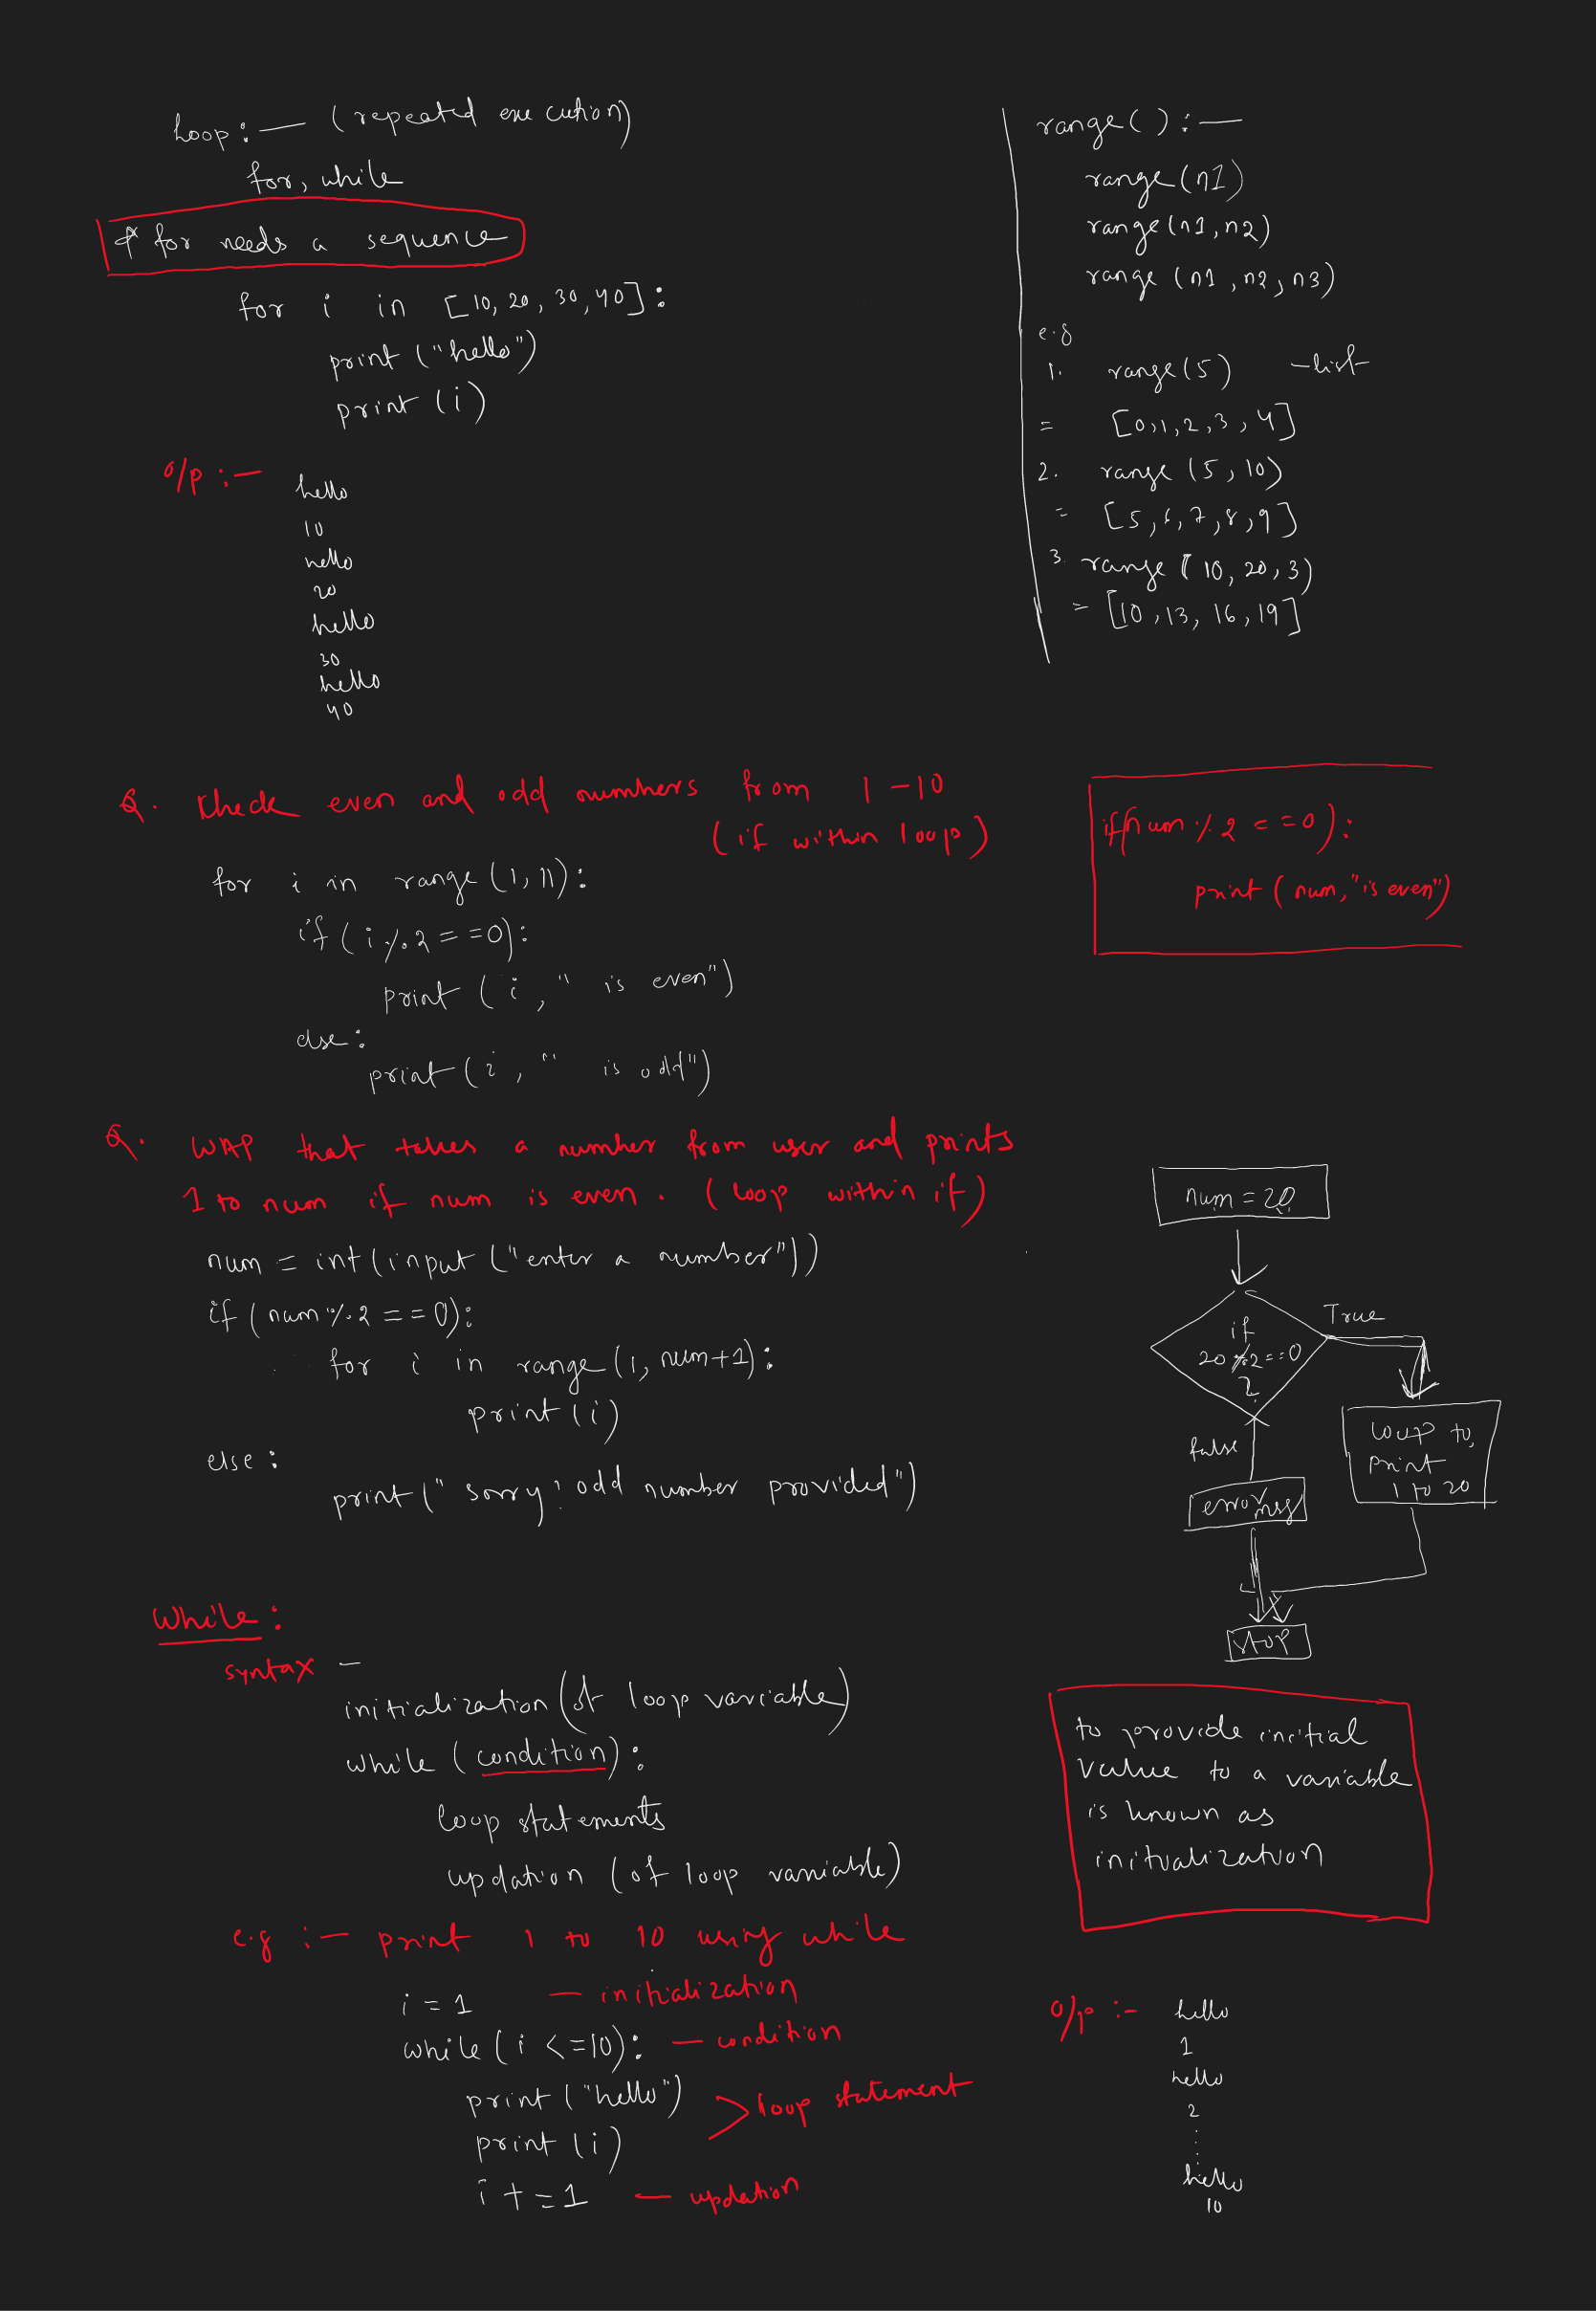 Loop :— (repeated execution)
for, while
* for needs a sequence
for i in [10, 20, 30, 40]:
print ("hello")
print (i)
o/p :—
hello
10
hello
20
hello
30
hello
40
range( ) :—
range(n1)
range(n1, n2)
range (n1, n2, n3)
e.g
1. range(5) - list
= [0,1,2,3,4]
2. range (5, 10)
= [5,6,7,8,9]
3. range (10, 20, 3)
= [10, 13, 16, 19]
Q. Check even and odd numbers from 1-10
(if within loop)
for i in range(1, 11):
if (i % 2 == 0):
print (i, " is even")
else:
print (i, " is odd")
if(num % 2 == 0):
print (num, "is even")
Q. WAP that takes a number from user and prints
1 to num if num is even. (loop within if)
num = int(input ("enter a number"))
if (num % 2 == 0):
for i in range(1, num+1):
print (i)
else:
print (" sorry! odd number provided")
num = 20
if
20 % 2 == 0
?
True
false
loop to
print
1 to 20
error msg
stop
While:
syntax —
initialization (of loop variable)
while (condition):
loop statements
updation (of loop variable)
to provide initial
value to a variable
is known as
initialization
e.g :— print 1 to 10 using while
i = 1 — initialization
while (i <= 10): — condition
print ("hello")
> loop statement
print (i)
i += 1 — updation
o/p :- hello
1
hello
2
.
.
.
hello
10